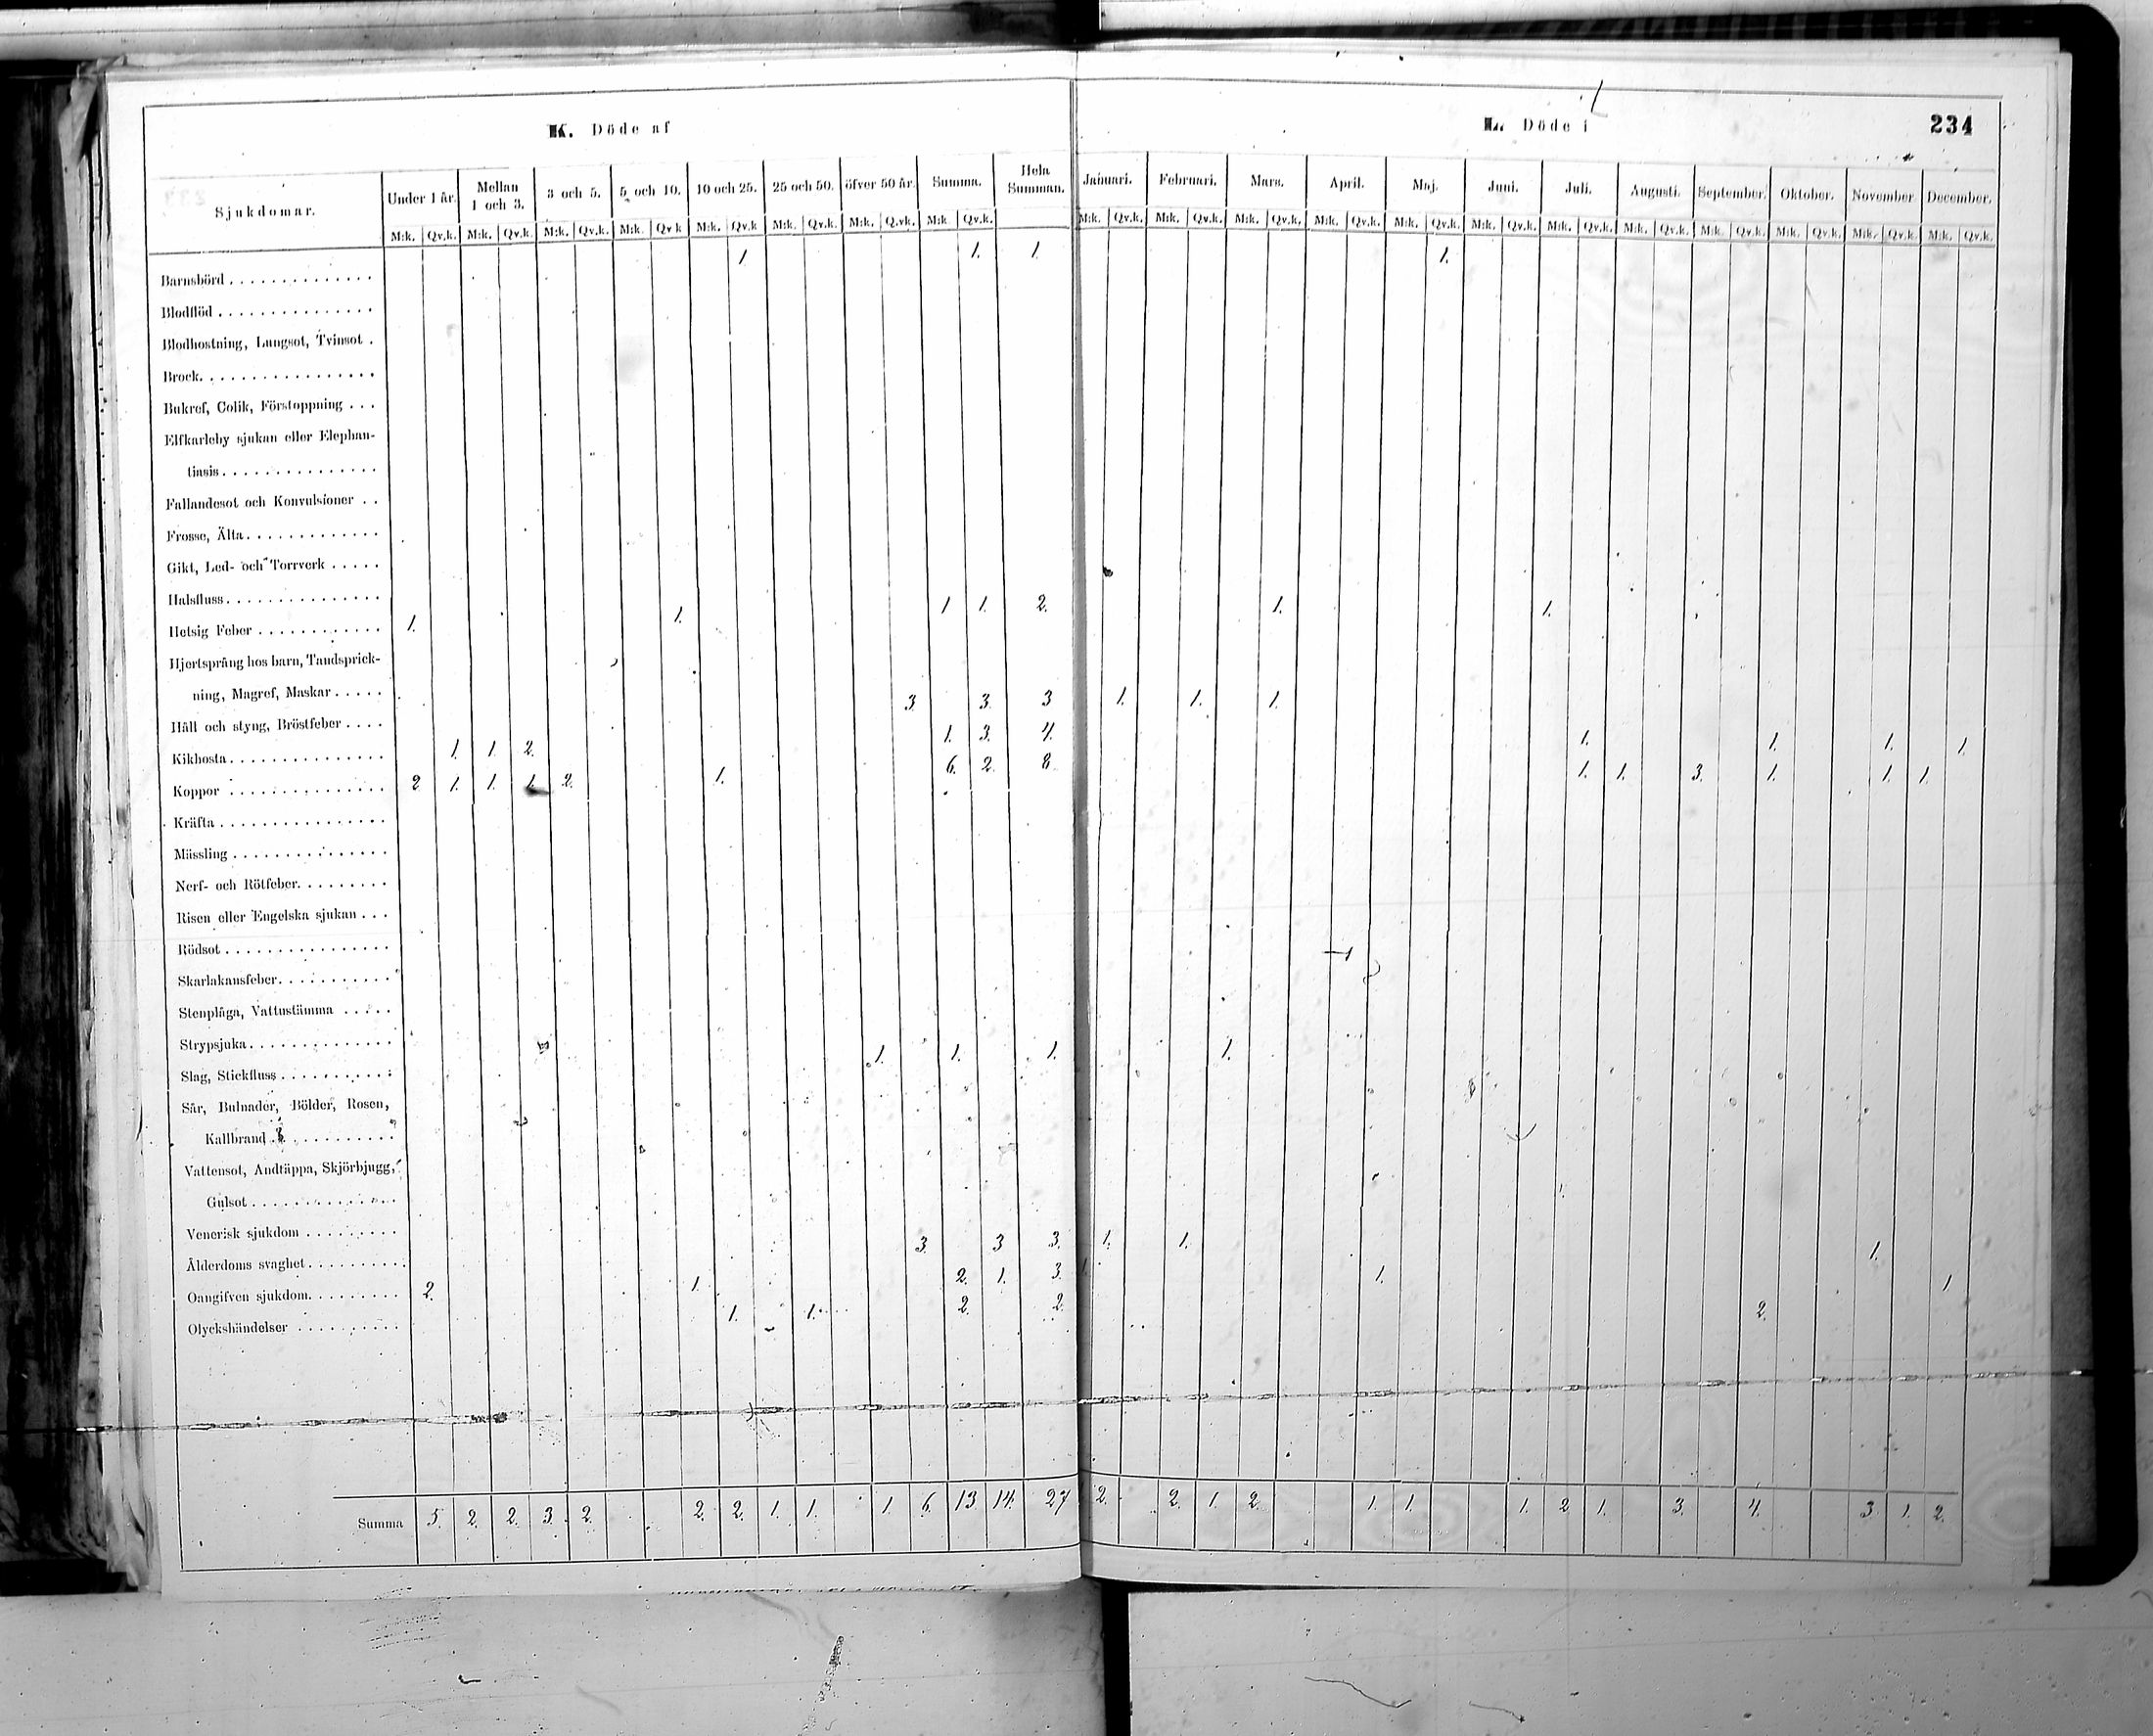 K. Döde af
L. Döde i
234
Sjukdomar. Under 1 år. Mellan 1 och 3. 3 och 5. 5 och 10. 10 och 25. 25 och 50. öfver 50 år. Summa. Hela Summan. Januari. Februari. Mars. April. Maj. Juni. Juli. Augusti. September. Oktober. November December.
M:k. Qv.k. M:k. Qv.k. M:k. Qv.k. M:k. Qv k M:k. Qv.k M:k. Qv.k. M:k. Q.vk. M:k. Qv.k. M:k. Qv.k. M:k. Qv.k. M:k. Qv.k. M:k. Qv.k. M:k. Qv.k. M:k. Qv.k. M:k. Qv.k. M:k. Qv.k. M:k. Qv.k. M:k. Qv.k. M:k. Qv.k. M:k. Qv.k.
1 1. 1. 1.
Barnsbörd
Blodflöd
Blodhostning, Lungsot, Tvinsot
Brock
Bukref, Colik, Förstoppning
Elfkarleby sjukan eller Elephan-
tiasis
Fallandesot och Konvulsioner
Frosse, Älta
Gikt, Led- och Torrverk
Halsfluss
Hetsig Feber 1. 1. 1 1. 2. 1. 1.
Hjertsprång hos barn, Tandsprick-
ning, Magref, Maskar
3. 3. 3 1. 1. 1.
Håll och styng, Bröstfeber
Kikhosta 1. 1. 2. 1. 3. 4. 1. 1. 1. 1.
Koppor 2 1. 1. 1. 2. 1. 6. 2. 8 1. 1. 3. 1. 1. 1.
Kräfta
Mässling
Nerf- och Rötfeber
Risen eller Engelska sjukan
Rödsot
Skarlakansfeber
Stenplåga, Vattustämma
Strypsjuka
1. 1. 1. 1.
Slag, Stickfluss
Sår, Bulnader, Bölder, Rosen,
Kallbrand
Vattensot, Andtäppa, Skjörbjugg,
Gulsot
Venerisk sjukdom
3. 3 3. 1. 1. 1.
Ålderdoms svaghet
Oangifven sjukdom 2. 1. 2. 1. 3. 1. 1. 1
1. 1. 2. 2. 2.
Olyckshändelser
Summa 5. 2. 2. 3. 2. 2. 2. 1. 1. 1. 6. 13. 14. 27 2. 2. 1. 2. 1. 1. 1. 2. 1. 3. 4. 3. 1. 2.